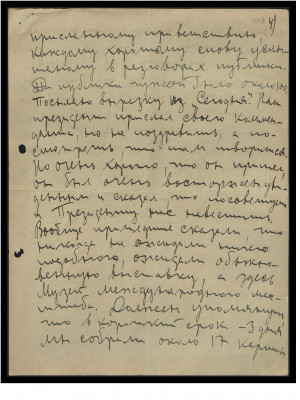 4)
присланному приветствию,
каждому хорошему слову услы-
шанному в разговорах публики.
публики чужой было около 100.
Посылаю вырезку из „Сегодня". Наш
президент прислал своего Комен-
данта, но не поздравить, а по-
смотреть, что там творится.
Но очень хорошо, что он пришел,
он был очень восторжен уви-
денным и сказал, что посоветует
и Президенту нас навестить.
Вообще пришедшие сказали, что
никогда не ожидали ничего
подобного, ожидали обыкно-
венную выставку, а здесь
Музей международного мас-
штаба. Должен упомянуть,
что в короткий срок – 3 дня
мы собрали около 17 картин